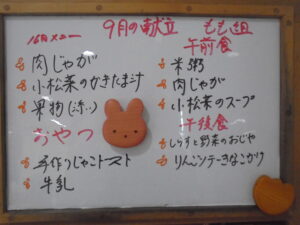 9月の献立 もも組
16日メニュー
肉じゃが
小松菜のかきたま汁
果物
おやつ
手作りじゃこトースト
牛乳
午前食
米粥
肉じゃが
小松菜のスープ
午後食
しらすと野菜のおじや
りんごソテーきなこかけ